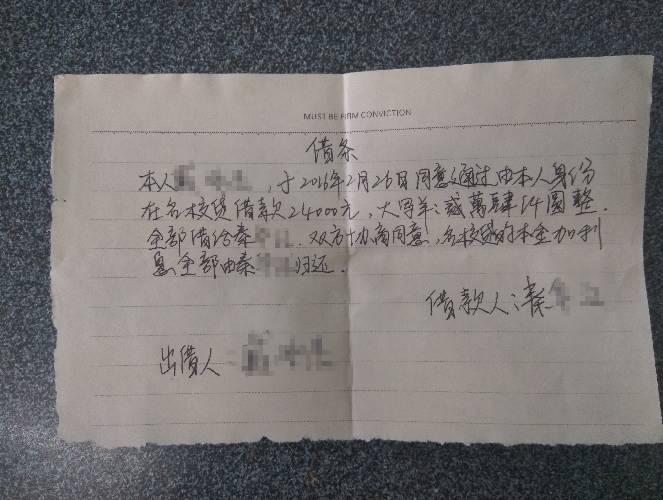 MUST BE FIRM CONVICTION
借条
本人，于2016年2月26日同意通过由本人身份
在名校贷借款24000元，大写：贰萬肆仟圆整.
全部借给秦，双方协商同意，名校贷的本金加利
息全部由秦归还.
借款人：秦
出借人：